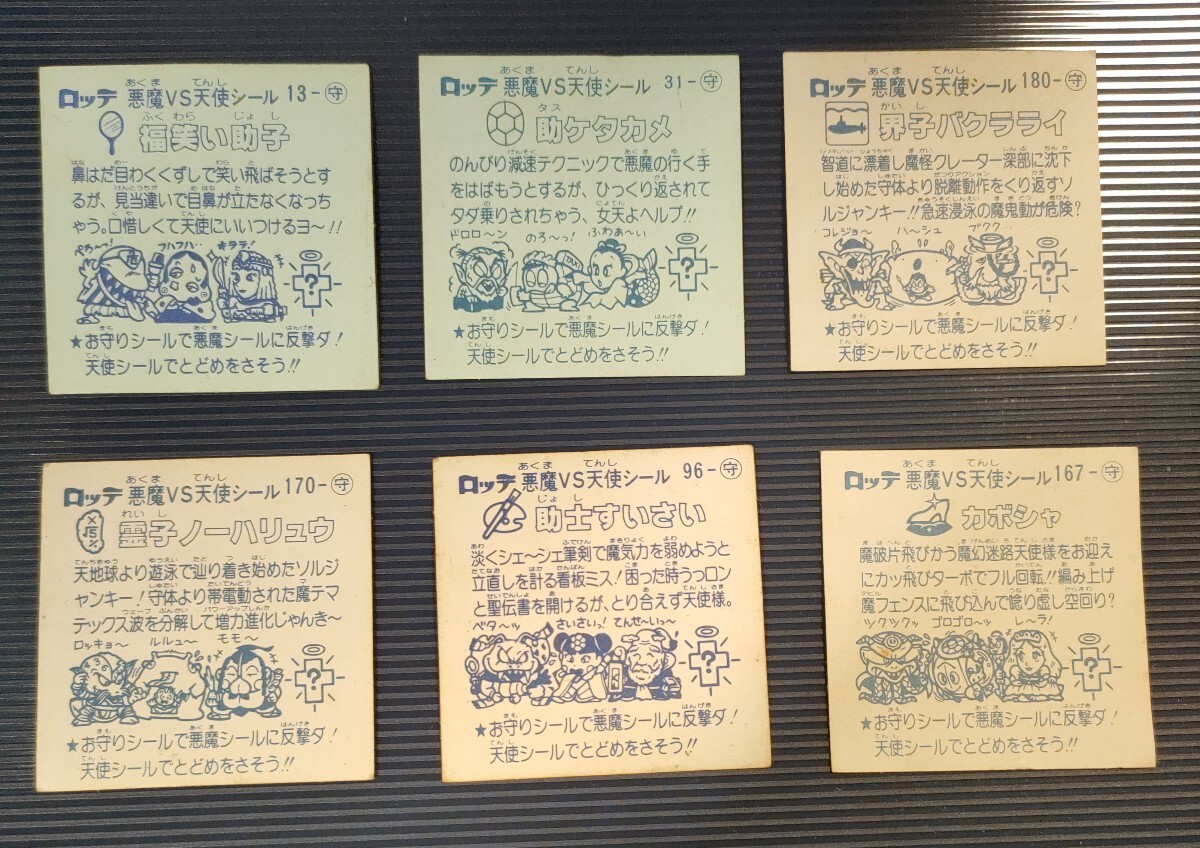 ロッテ 悪魔VS天使シール 13-守
福笑い助子
鼻はだ目わくくずしで笑い飛ばそうとす
るが、見当違いで目鼻が立たなくなっち
ゃう。口惜しくて天使にいいつけるヨ〜!!
ぺろ〜! フハフハ… キララ!
?
★お守りシールで悪魔シールに反撃ダ!
天使シールでとどめをさそう!!
ロッテ 悪魔VS天使シール 31-守
助ケタカメ
のんびり減速テクニックで悪魔の行く手
をはばもうとするが、ひっくり返されて
タダ乗りされちゃう、女天よヘルプ!!
ドロロ〜ン のろ〜っ! ふわぁ〜い
?
★お守りシールで悪魔シールに反撃ダ!
天使シールでとどめをさそう!!
ロッテ 悪魔VS天使シール 180-守
界子バクラライ
智道に漂着し魔怪クレーター深部に沈下
し始めた守体より脱離動作をくり返すソ
ルジャンキー!!急速浸泳の魔鬼動が危険?
コレジョ〜 ハ〜シュ ブクク…
?
★お守りシールで悪魔シールに反撃ダ!
天使シールでとどめをさそう!!
ロッテ 悪魔VS天使シール 170-守
霊子ノーハリュウ
天地球より遊泳で辿り着き始めたソルジ
ャンキー!守体より帯電動された魔テマ
テックス波を分解して増力進化じゃんき〜
ロッキョ〜 ルルュ〜 モモ〜
?
★お守りシールで悪魔シールに反撃ダ!
天使シールでとどめをさそう!!
ロッテ 悪魔VS天使シール 96-守
助士すいさい
淡くシェ〜シェ筆剣で魔気力を弱めようと
立直しを計る看板ミス!困った時うっロン
と聖伝書を開けるが、とり合えず天使様。
ベタ〜ッ さいさいっ! てんせ〜いっ〜
?
★お守りシールで悪魔シールに反撃ダ!
天使シールでとどめをさそう!!
ロッテ 悪魔VS天使シール 167-守
カボシャ
魔破片飛びかう魔幻迷路天使様をお迎え
にカッ飛びターボでフル回転!!編み上げ
魔フェンスに飛び込んで唸り虚し空回り?
ツクックッ ゴロゴロ〜ッ レ〜ラ!
?
★お守りシールで悪魔シールに反撃ダ!
天使シールでとどめをさそう!!